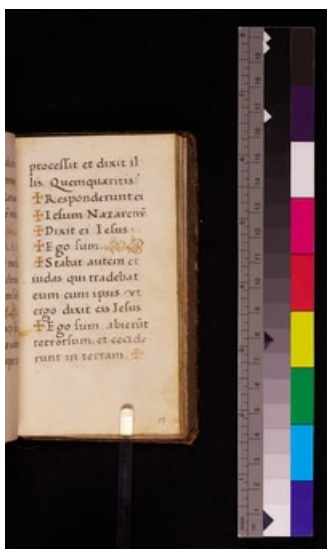 processit et dixit il
lis. Quem quæritis?
✠ Responderunt ei
✠ Iesum Nazarenũ.
✠ Dixit ei Iesus
✠ Ego sum.
✠ Stabat autem et
iudas qui tradebat
eum cum ipsis vt
ergo dixit eis Iesus
✠ Ego sum abierũt
retrorsum, et cecide
runt in terram. ✠